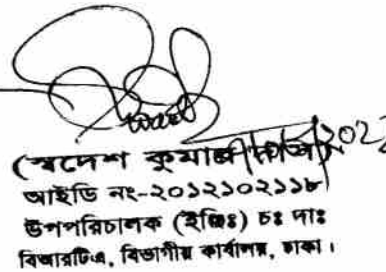 (স্বদেশ কুমার
আইডি নং-২০১২১০২১১৮
উপপরিচালক (ইঞ্জিঃ) চঃ দাঃ
বিআরটিএ, বিভাগীয় কার্যালয়, ঢাকা।